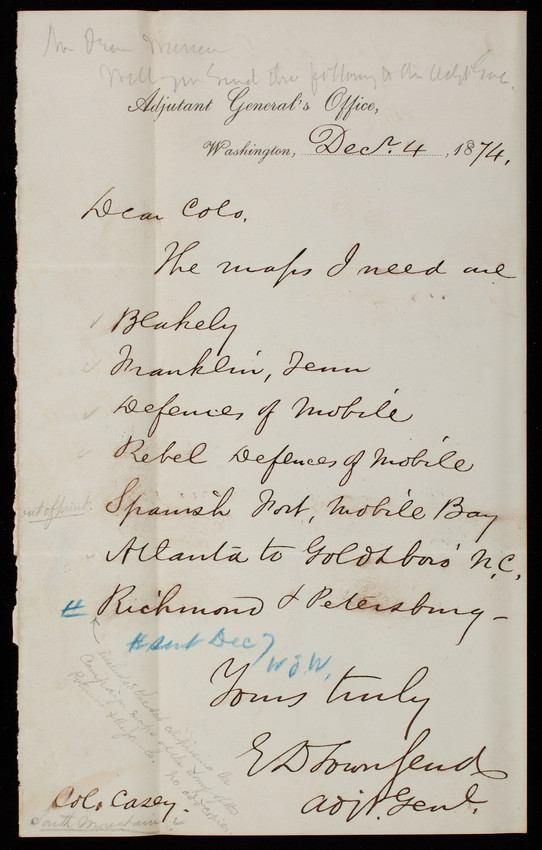 Will you send the following to the Adjt Genl.
Adjutant General's Office,
Washington, Decr. 4, 1874.
Dear Colo.
The maps I need are
Blakely
Franklin, Tenn
Defences of Mobile
Rebel Defences of Mobile
out of print.
Spanish Fort, Mobile Bay
Atlanta to Goldsboro' N.C.
# Richmond & Petersburg -
# sent Dec 7
W.J.W.
Yours truly
E D Townsend
Adjt. Genl.
Colo. Casey.
South Mountain